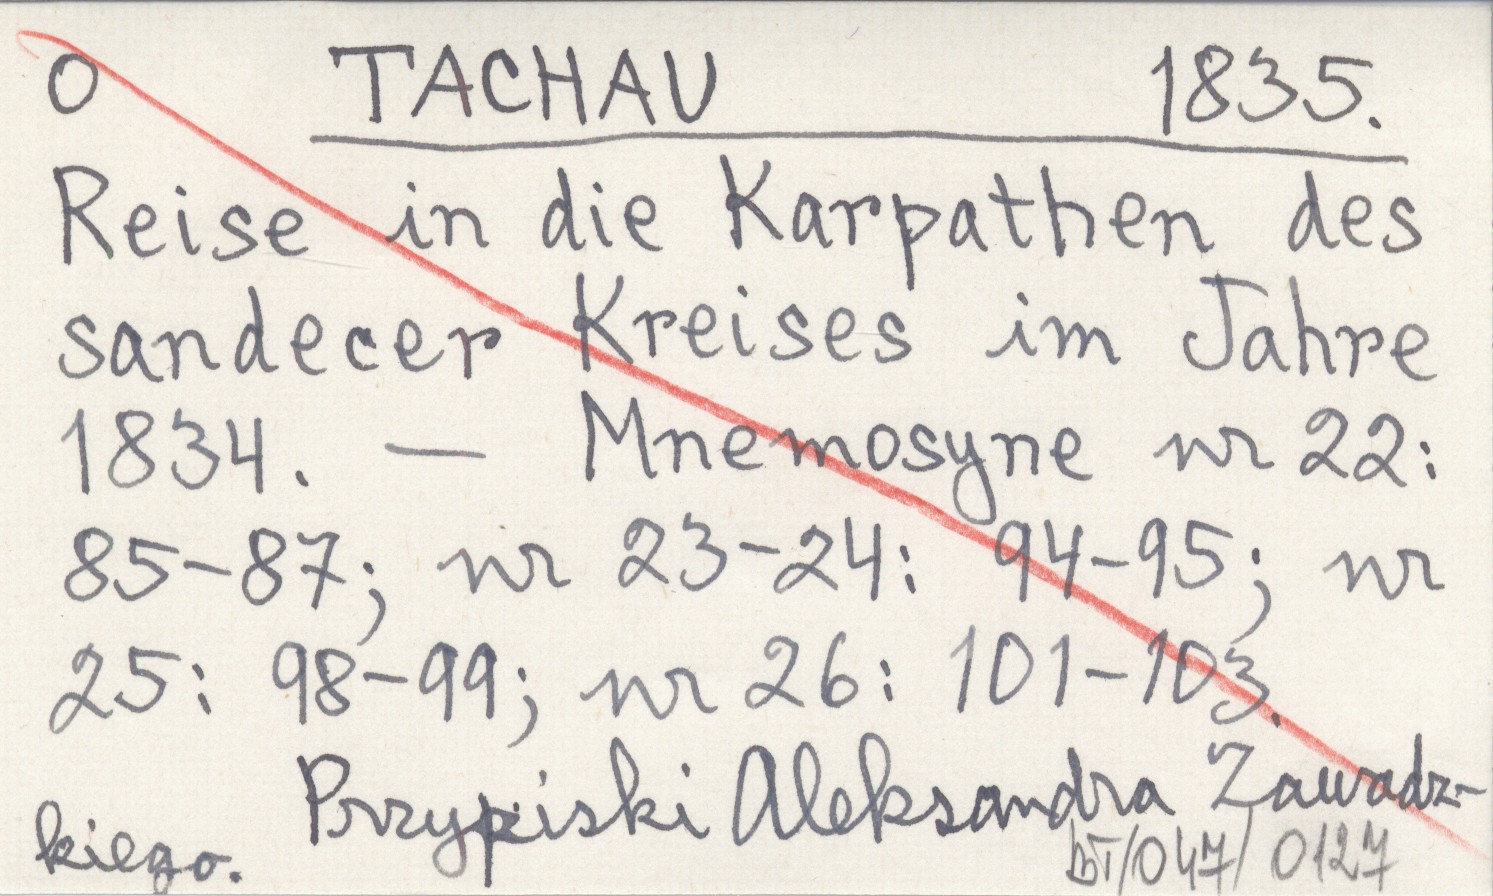 O TACHAU 1835.
Reise in die Karpathen des
sandecer Kreises im Jahre
1834. — Mnemosyne nr 22:
85-87; nr 23-24: 94-95; nr
25: 98-99; nr 26: 101-103.
Przypiski Aleksandra Zawadz-
kiego.
BT/047/0127